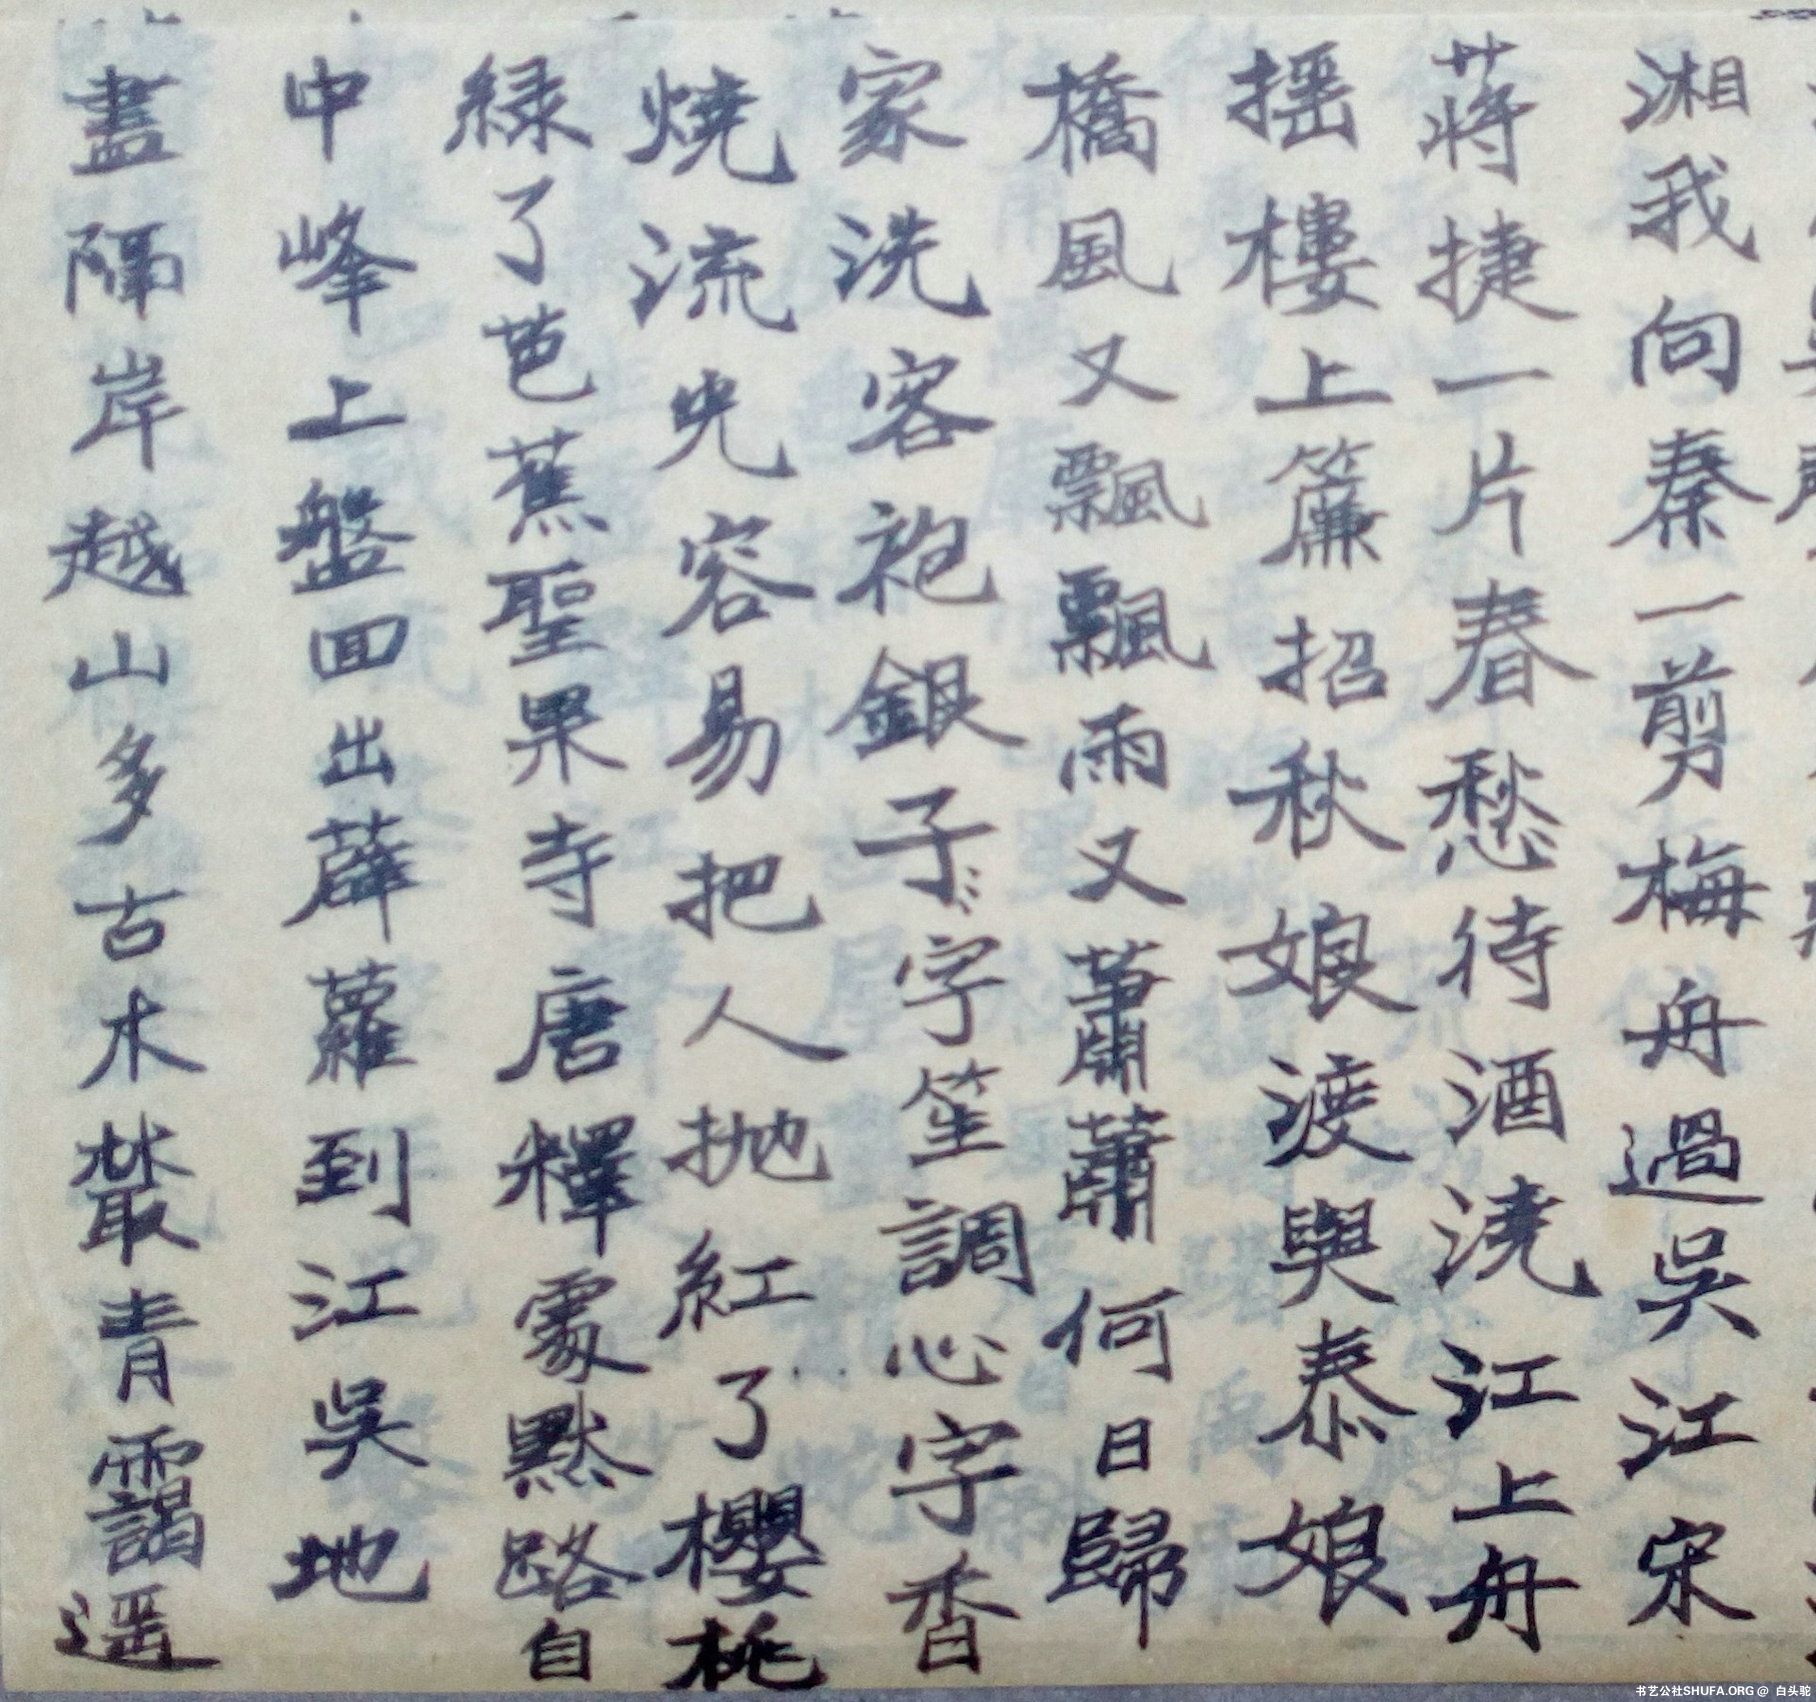 湘我向秦一剪梅舟過吳江宋
蔣捷一片春愁待酒澆江上舟
摇樓上簾招秋娘渡與泰娘
橋風又飄飄雨又蕭蕭何日歸
家洗客袍銀子字笙調心字香
燒流光容易把人抛紅了櫻桃
緑了芭蕉聖果寺唐釋處默路自
中峰上盤回出薜蘿到江吳地
盡隔岸越山多古木叢青靄遥
书艺公社SHUFA.ORG @ 白头鸵